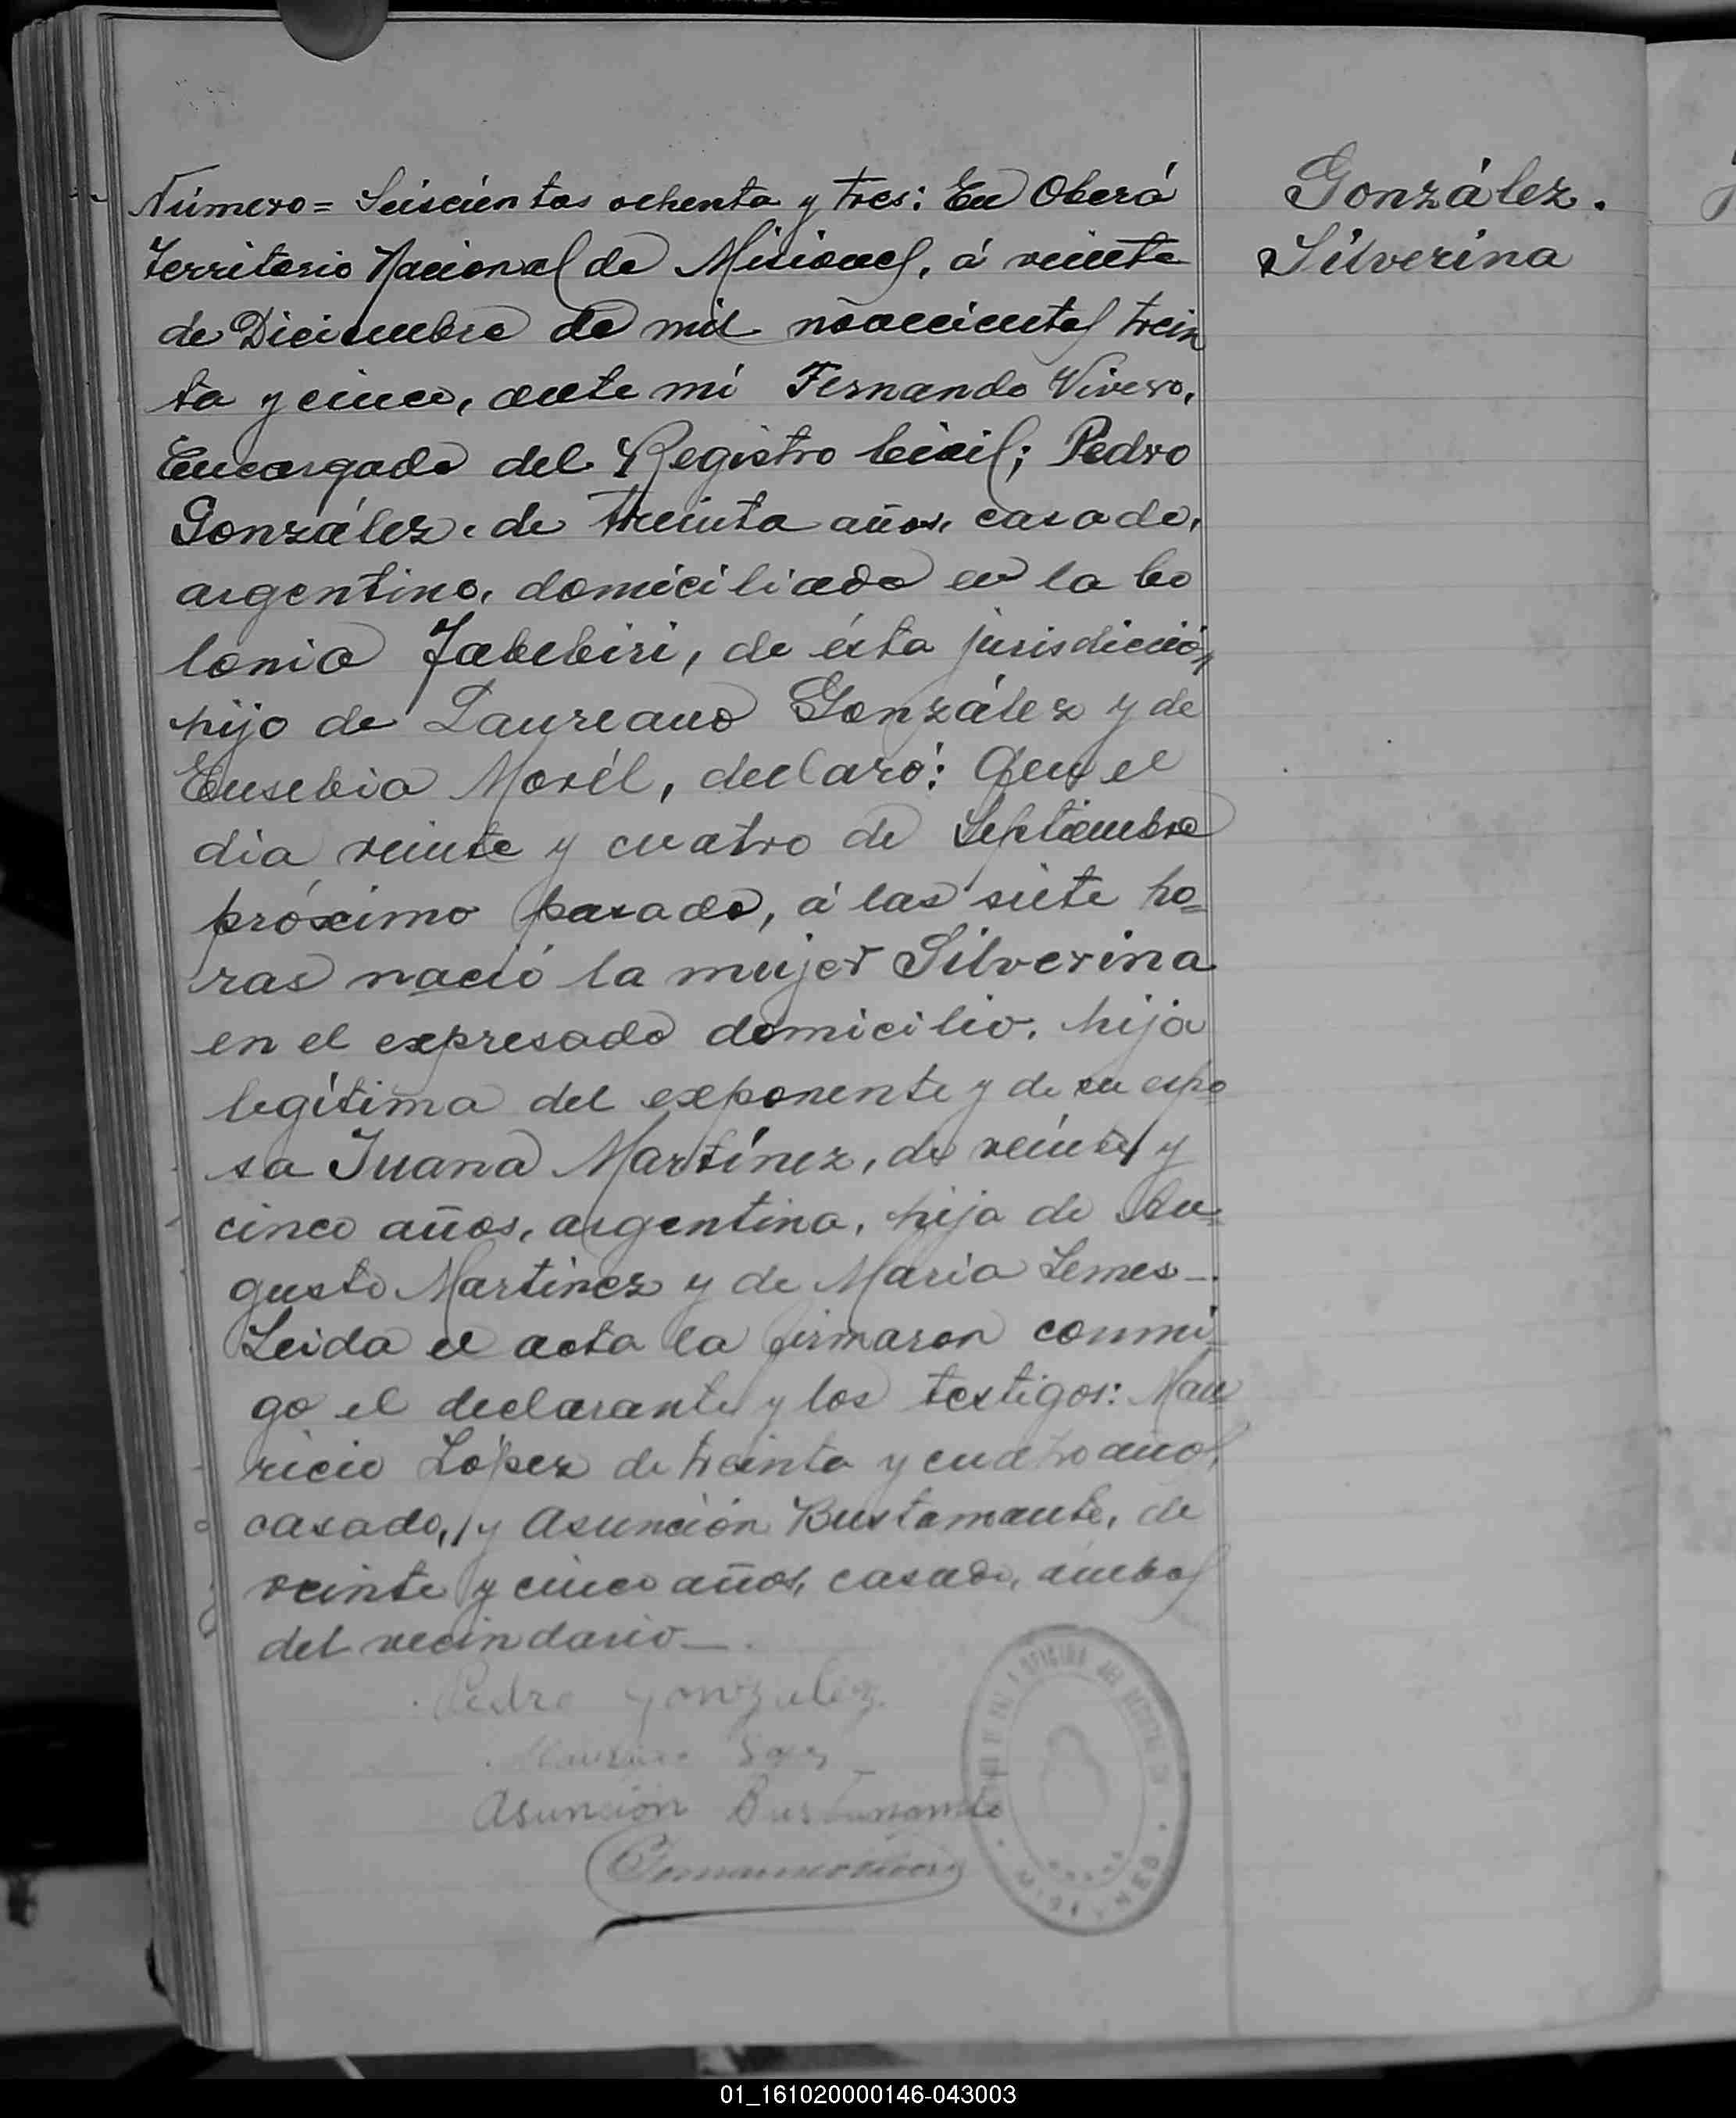 Número = Seiscientos ochenta y tres: En Oberá
Territorio Nacional de Misiones, á veinte
de Diciembre de mil novecientos trein
ta y cinco, ante mí Fernando Vivero,
Encargado del Registro Civil; Pedro
González, de treinta años, casado,
argentino, domiciliado en la Co
lonia Yabebiri, de ésta jurisdicción,
hijo de Laureano González y de
Eusebia Morél, declaró: Que el
dia veinte y cuatro de Septiembre
próximo pasado, á las siete ho=
ras nació la mujer Silverina
en el expresado domicilio, hija
legítima del exponente y de su espo
sa Juana Martínez, de veinte y
cinco años, argentina, hija de Au=
gusto Martinez y de Maria Lemes_.
Leida el acta la firmaron conmi_
go el declarante y los testigos: Mau
ricio López de treinta y cuatro años,
casado, y Asunción Bustamante, de
veinte y cinco años, casado, ámbos
del vecindario_.
Pedro Gonzalez
Asunción Bustamante
González.
Silverina
01_161020000146-043003